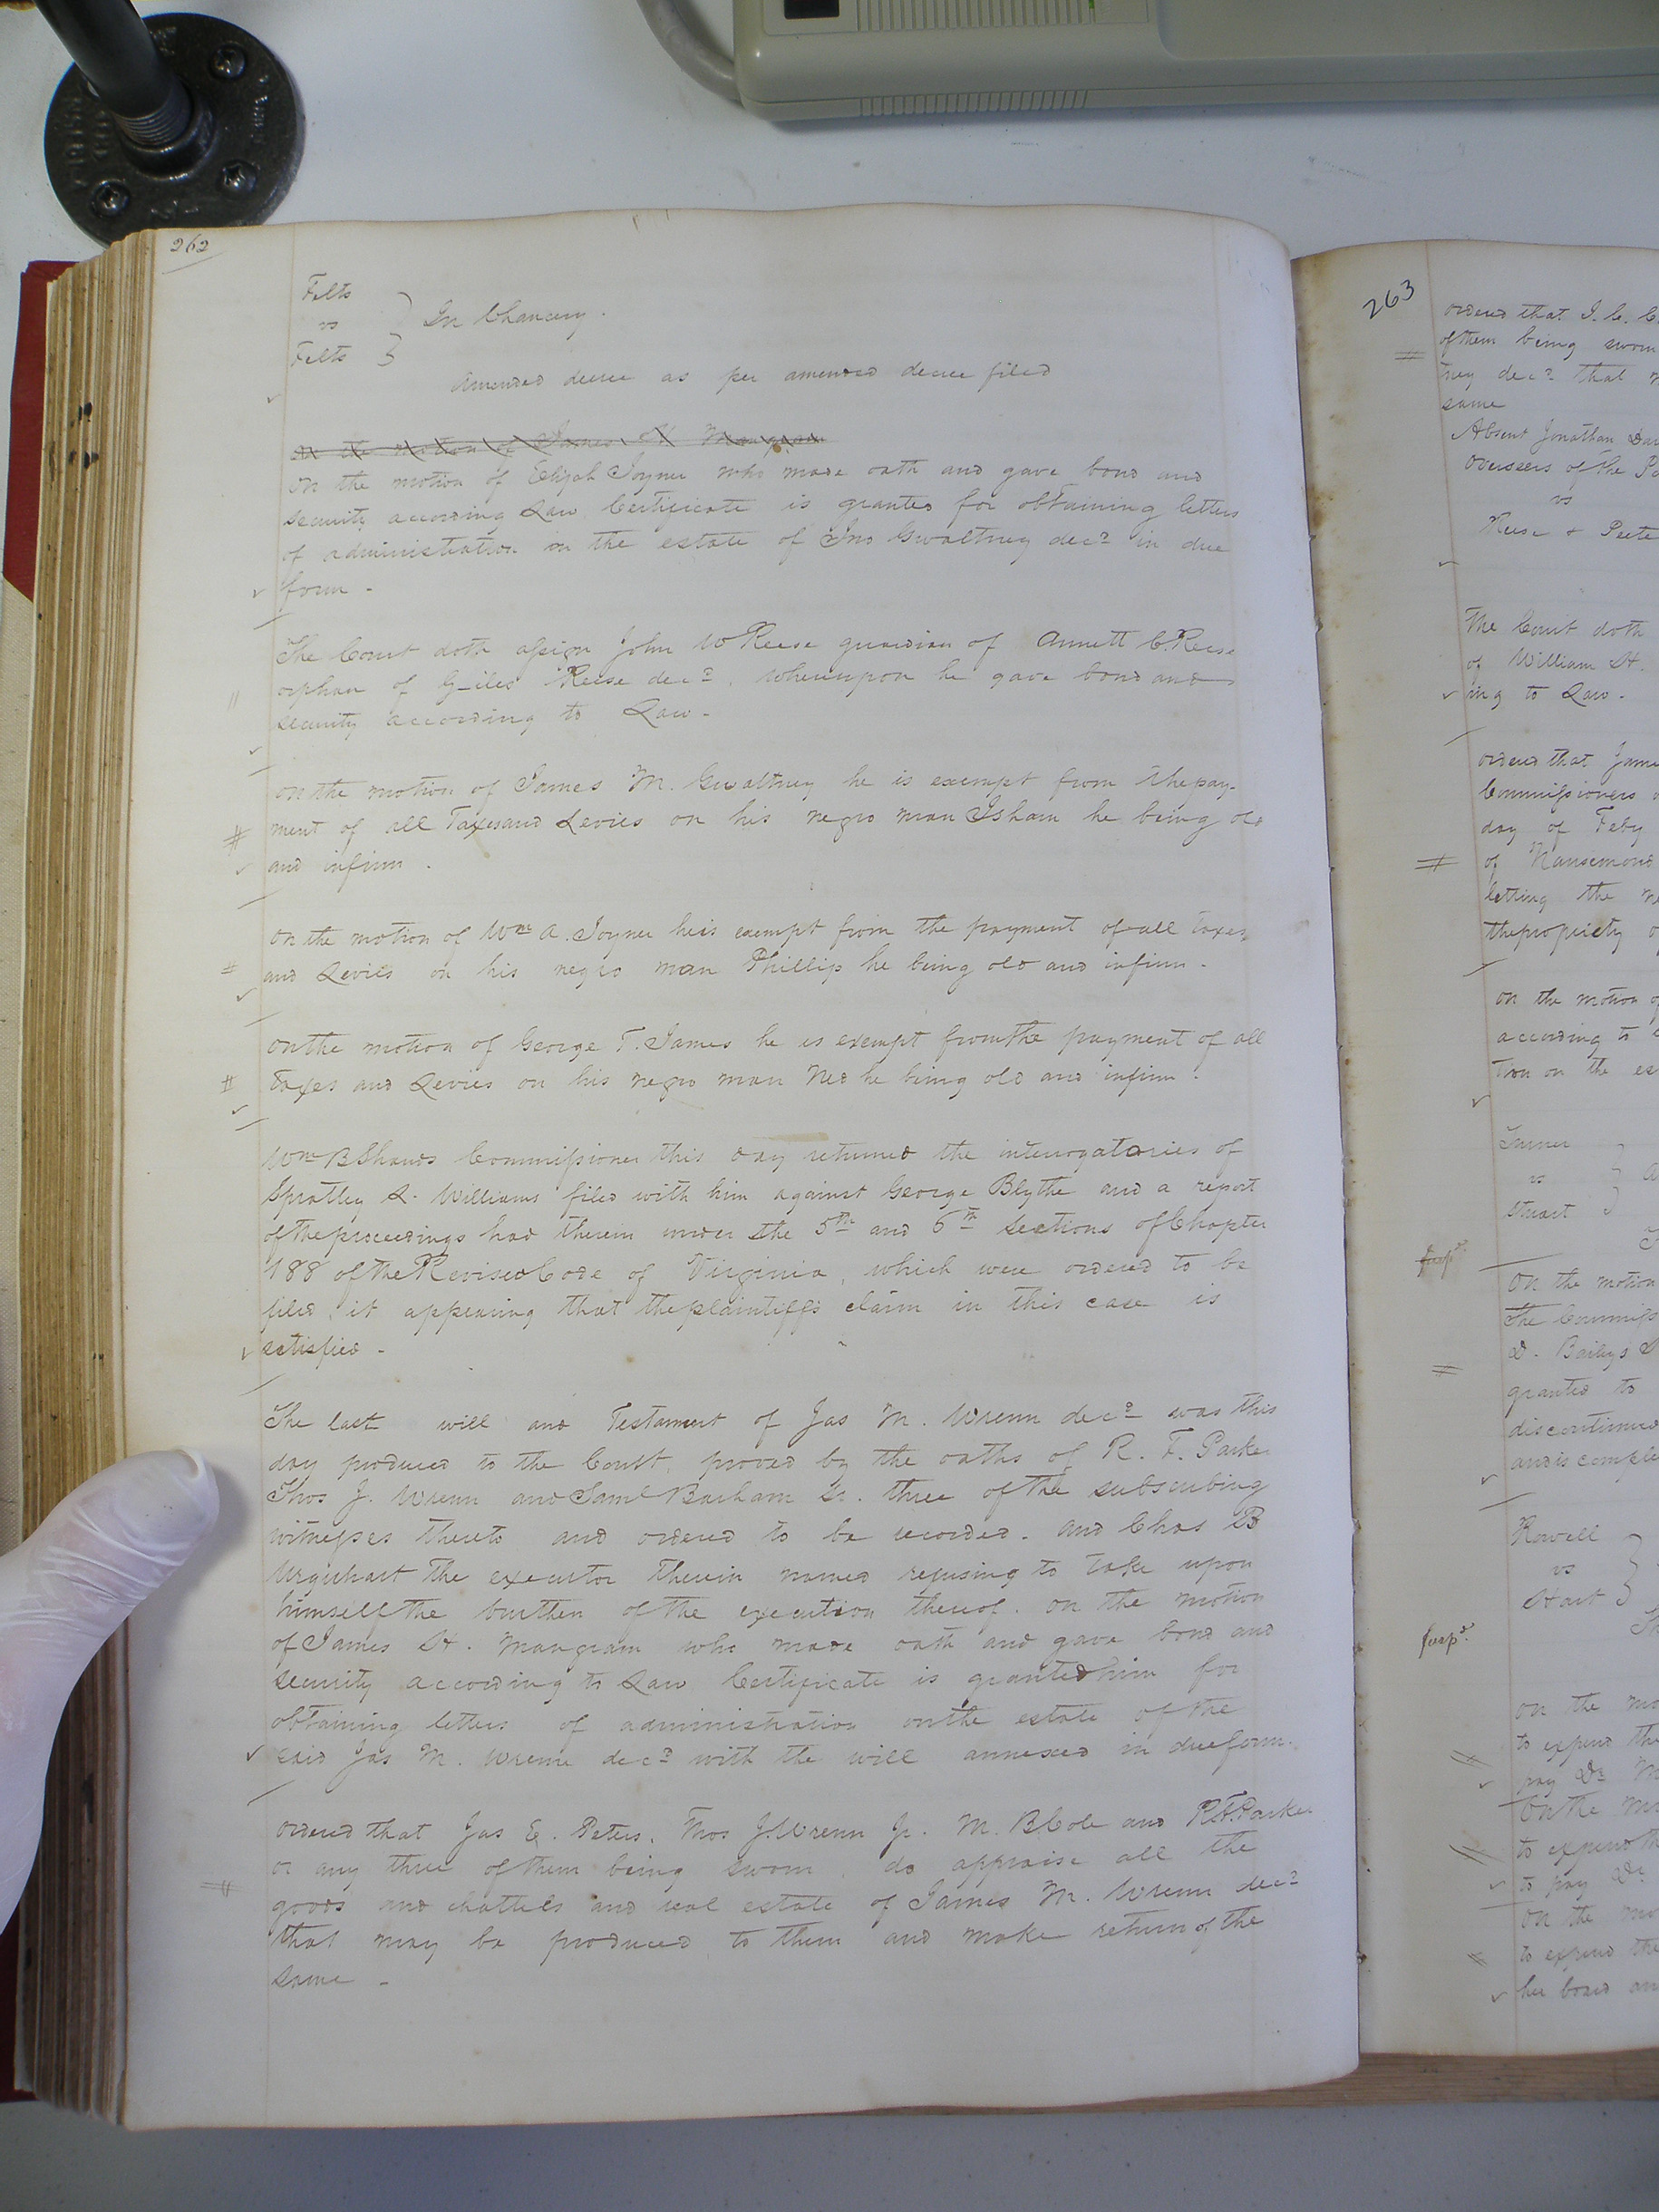 262
Felts
vs } In Chancery.
Felts
Amended decree as per amended decree filed
On the motion of James H Mangram
On the motion of Elijah Joyner who made oath and gave bond and
security according Law Certificate is granted for obtaining letters
of administration on the estate of Jno Gwaltney decd in due
form -
The Court doth assign John W Reese guardian of Annett C. Reese
orphan of Giles Reese decd. whereupon he gave bond and
security according to Law -
On the motion of James M. Gwaltney he is exempt from the pay-
ment of all Taxes and Levies on his negro man Isham he being old
and infirm.
On the motion of Wm A. Joyner he is exempt from the payment of all taxes
and Levies on his negro man Phillip he being old and infirm -
On the motion of George T. James he is exempt from the payment of all
Taxes and Levies on his negro man Ned he being old and infirm.
Wm B Shands Commissioner this day returned the interrogatories of
Spratley & Williams filed with him against George Blythe and a report
of the proceedings had therein under the 5th and 6th sections of Chapter
188 of the Revised Code of Virginia, which were ordered to be
filed, it appearing that the plaintiffs claim in this case is
satisfied -
The last will and Testament of Jas M. Wrenn decd was this
day produced to the Court, proved by the oaths of R. F. Parker
Thos J. Wrenn and Saml Barham Sr. three of the subscribing
witnesses thereto and ordered to be recorded. And Chas B
Urquhart the executor therein named refusing to take upon
himself the burthen of the execution thereof. On the motion
of James H. Mangram who made oath and gave bond and
security according to Law Certificate is granted him for
obtaining letters of administration on the estate of the
said Jas M. Wrenn decd with the will annexed in due form.
Ordered that Jas E. Peters, Thos J. Wrenn Jr. M. B Cole and R. F. Parker
or any three of them being sworn, do appraise all the
goods and chattels and real estate of James M. Wrenn decd
that may be produced to them and make return of the
same -
263
Ordered that J. C.
of them being sworn
ney decd that
same
Absent Jonathan
Overseers of the
vs
Reese & Peete
The Court doth
of William H.
ing to Law -
Ordered that
Commissioners
day of Feby
of Nansemond
letting the
the propriety
On the motion of
according to
tion on the
Turner
vs
Stuart
On the motion
The Commiss
D. Baileys
granted to
discontinued
and is comple
Rowell
vs
Hart
On the
to expend the
pay Dr
On the
to expend th
to pay Dr
On the
to expend the
her board